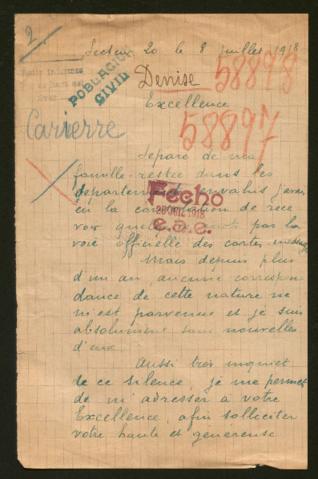 2
Secteur 20 le 8 juillet 1918
POBLACION
CIVIL
Denise
58898
Excellence
Carierre
58897
Séparé de ma
famille restée dans les
départements envahis j'avais
eu la consolation de rece
voir quelques par la
voie officielle des cartes-message
Fecho
e.a.e.
Mais depuis plus
d'un an aucune correspon
dance de cette nature ne
m'est parvenue et je suis
absolument sans nouvelles
d'eux.
Aussi très inquiet
de ce silence, je me permet
de m'adresser à votre
Excellence, afin solliciter
votre haute et généreuse